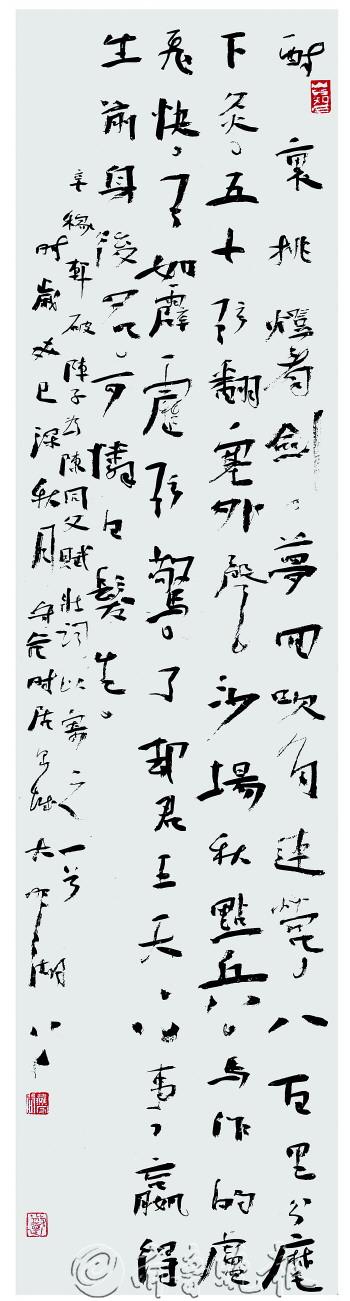 醉裏挑燈看劍夢回吹角連營八百里分麾
下炙五十弦翻塞外聲沙場秋點兵馬作的盧
飛快弓如霹靂弦驚了却君王天下事贏得
生前身後名可憐白髮生
辛稼軒破陣子為陳同父賦壯詞以寄之一首
時歲癸巳深秋月